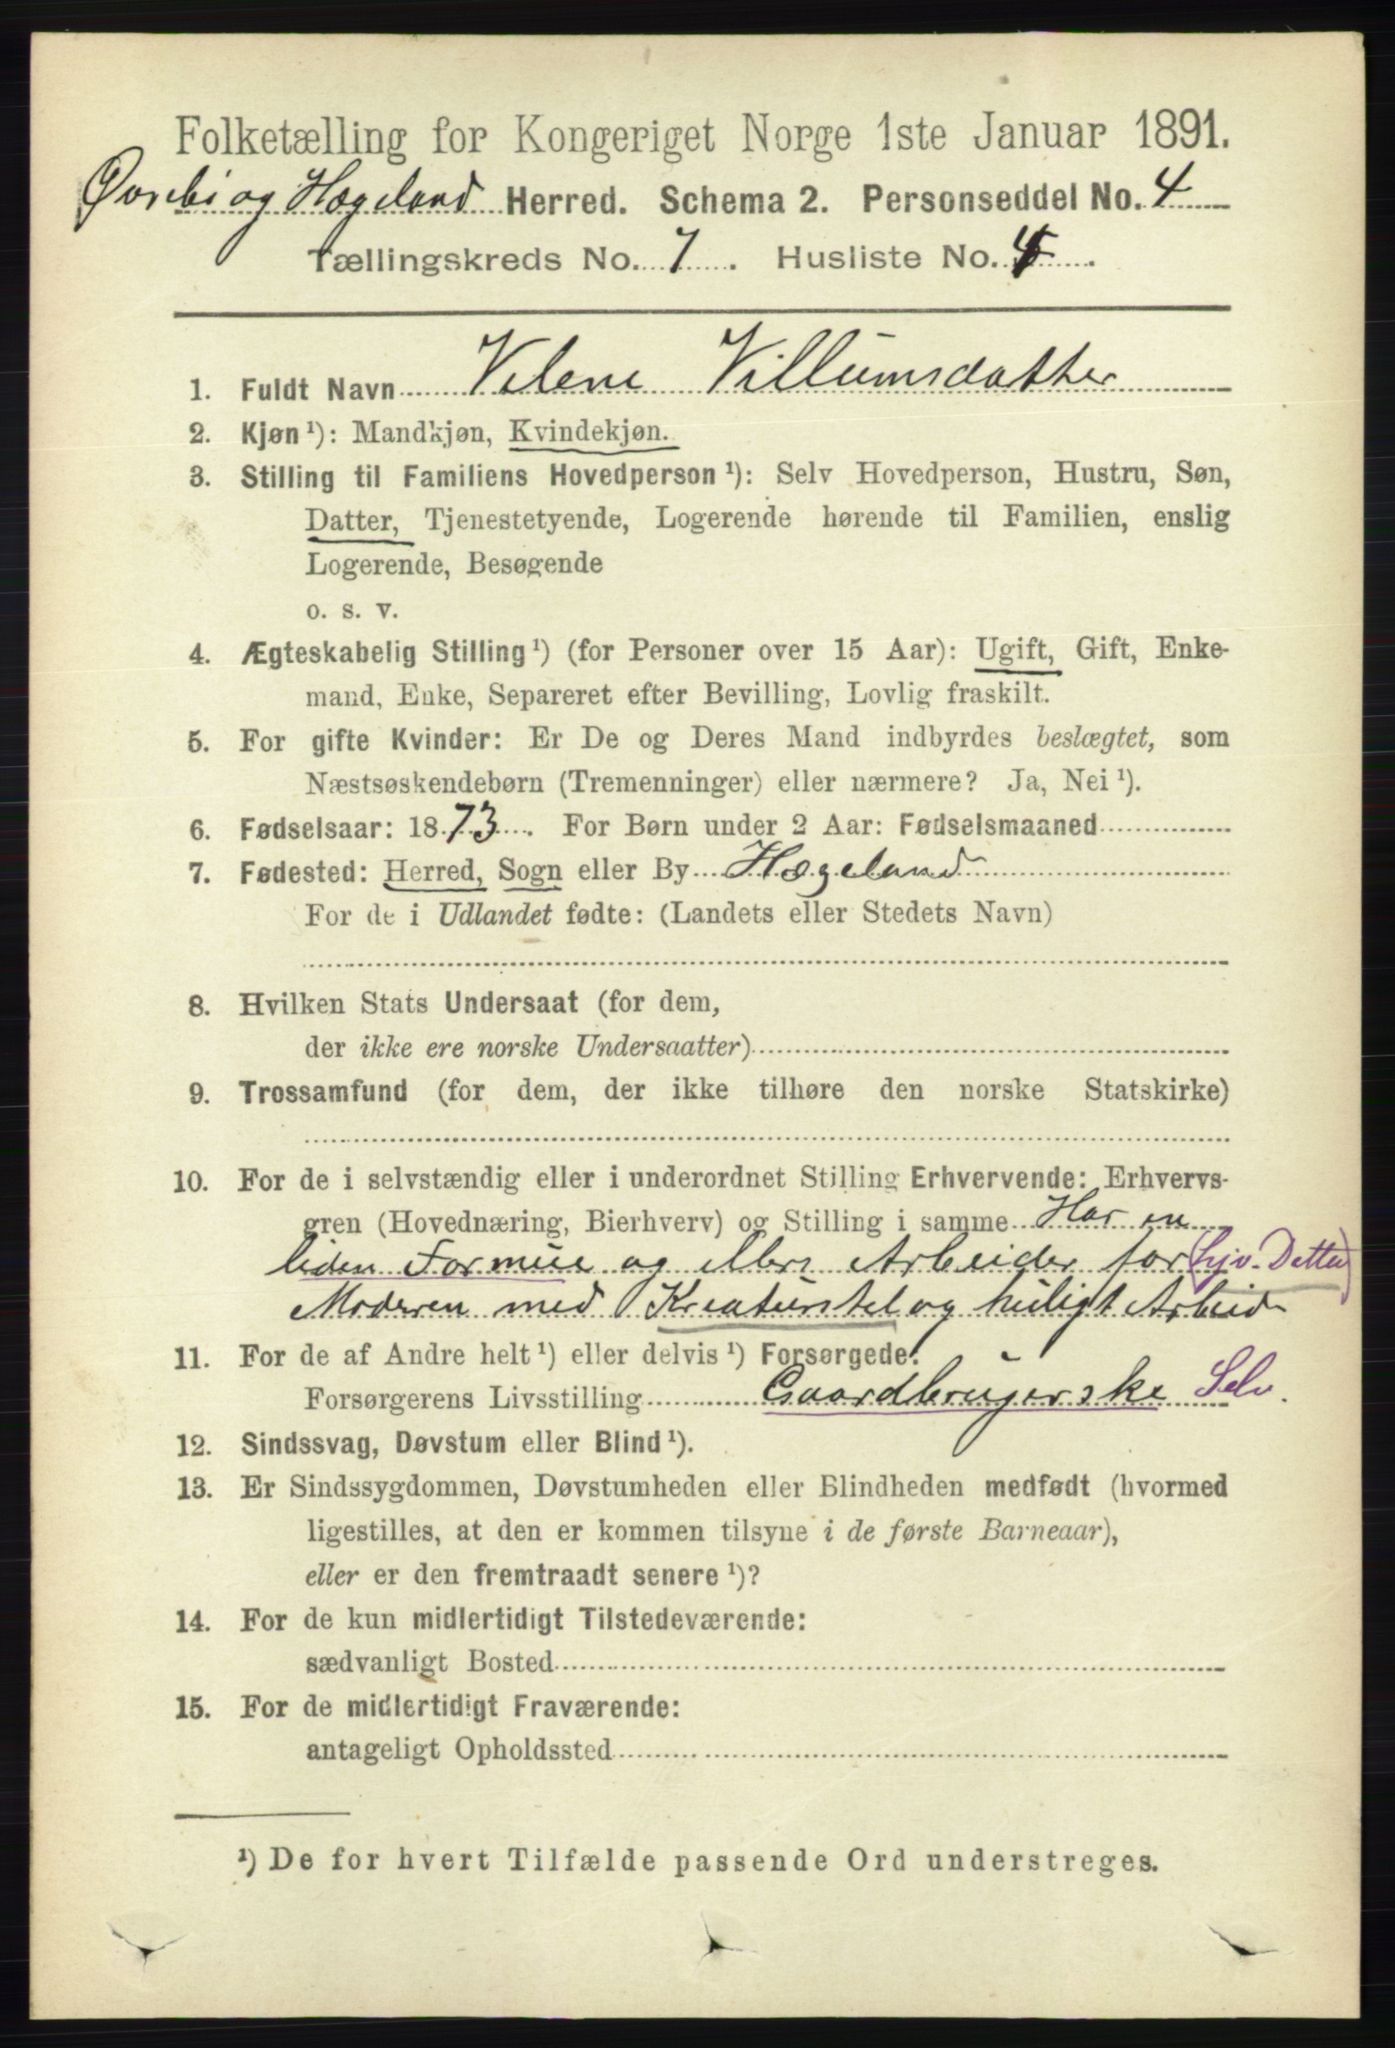 Folketælling for Kongeriget Norge 1ste Januar 1891.
Øvrebi og Hægeland Herred. Schema 2. Personseddel No. 4
Tællingskreds No. 7. Husliste No. 4.
1. Fuldt Navn Velene Villumsdatter
2. Kjøn ¹): Mandkjøn, Kvindekjøn.
3. Stilling til Familiens Hovedperson ¹): Selv Hovedperson, Hustru, Søn,
Datter, Tjenestetyende, Logerende hørende til Familien, enslig
Logerende, Besøgende
o. s. v.
4. Ægteskabelig Stilling ¹) (for Personer over 15 Aar): Ugift, Gift, Enke-
mand, Enke, Separeret efter Bevilling, Lovlig fraskilt.
5. For gifte Kvinder: Er De og Deres Mand indbyrdes beslægtet, som
Næstsøskendebørn (Tremenninger) eller nærmere? Ja, Nei ¹).
6. Fødselsaar: 1873. For Børn under 2 Aar: Fødselsmaaned
7. Fødested: Herred, Sogn eller By Hægeland
For de i Udlandet fødte: (Landets eller Stedets Navn)
8. Hvilken Stats Undersaat (for dem,
der ikke ere norske Undersaatter)
9. Trossamfund (for dem, der ikke tilhøre den norske Statskirke)
10. For de i selvstændig eller i underordnet Stilling Erhvervende: Erhvervs-
gren (Hovednæring, Bierhverv) og Stilling i samme Har en
liden Formue og ellers Arbeider for (Lejv. Dette)
Moderen med Kreaturstel og huligt Arbeid
11. For de af Andre helt ¹) eller delvis ¹) Forsørgede:
Forsørgerens Livsstilling Gaardbrugerske Selv.
12. Sindssvag, Døvstum eller Blind ¹).
13. Er Sindssygdommen, Døvstumheden eller Blindheden medfødt (hvormed
ligestilles, at den er kommen tilsyne i de første Barneaar),
eller er den fremtraadt senere ¹)?
14. For de kun midlertidigt Tilstedeværende:
sædvanligt Bosted
15. For de midlertidigt Fraværende:
antageligt Opholdssted
¹) De for hvert Tilfælde passende Ord understreges.